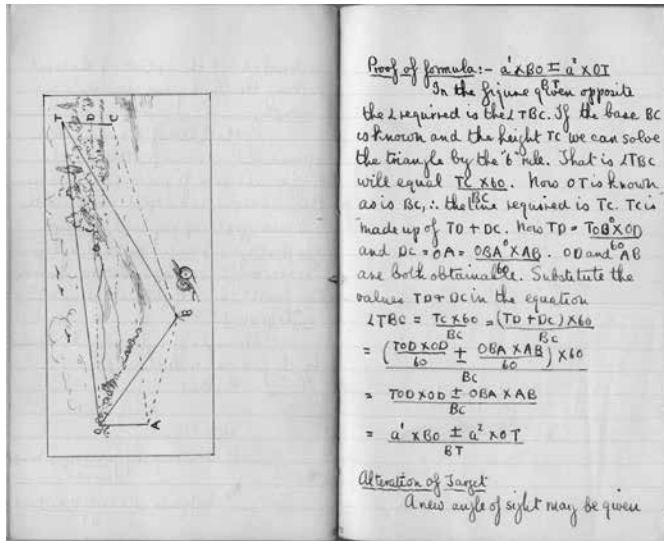 T
D
C
B
O
A
Proof of formula:- a¹ × BO ± a² × OT
BT
In the figure given opposite
the ∠ required is the ∠TBC. If the base BC
is known and the height TC we can solve
the triangle by the '6' rule. That is ∠TBC
will equal TC × 60. Now OT is known
BC
as is BC, ∴ the line required is TC. TC is
made up of TD + DC. Now TD = TOD° × OD
60
and DC = OA = OBA° × AB. OD and AB
60
are both obtainable. Substitute the
values TD + DC in the equation
∠TBC = TC × 60 = (TD + DC) × 60
BC BC
= (TOD × OD ± OBA × AB) × 60
60 60
BC
= TOD × OD ± OBA × AB
BC
= a¹ × BO ± a² × OT
BT
Alteration of Target
A new angle of sight may be given